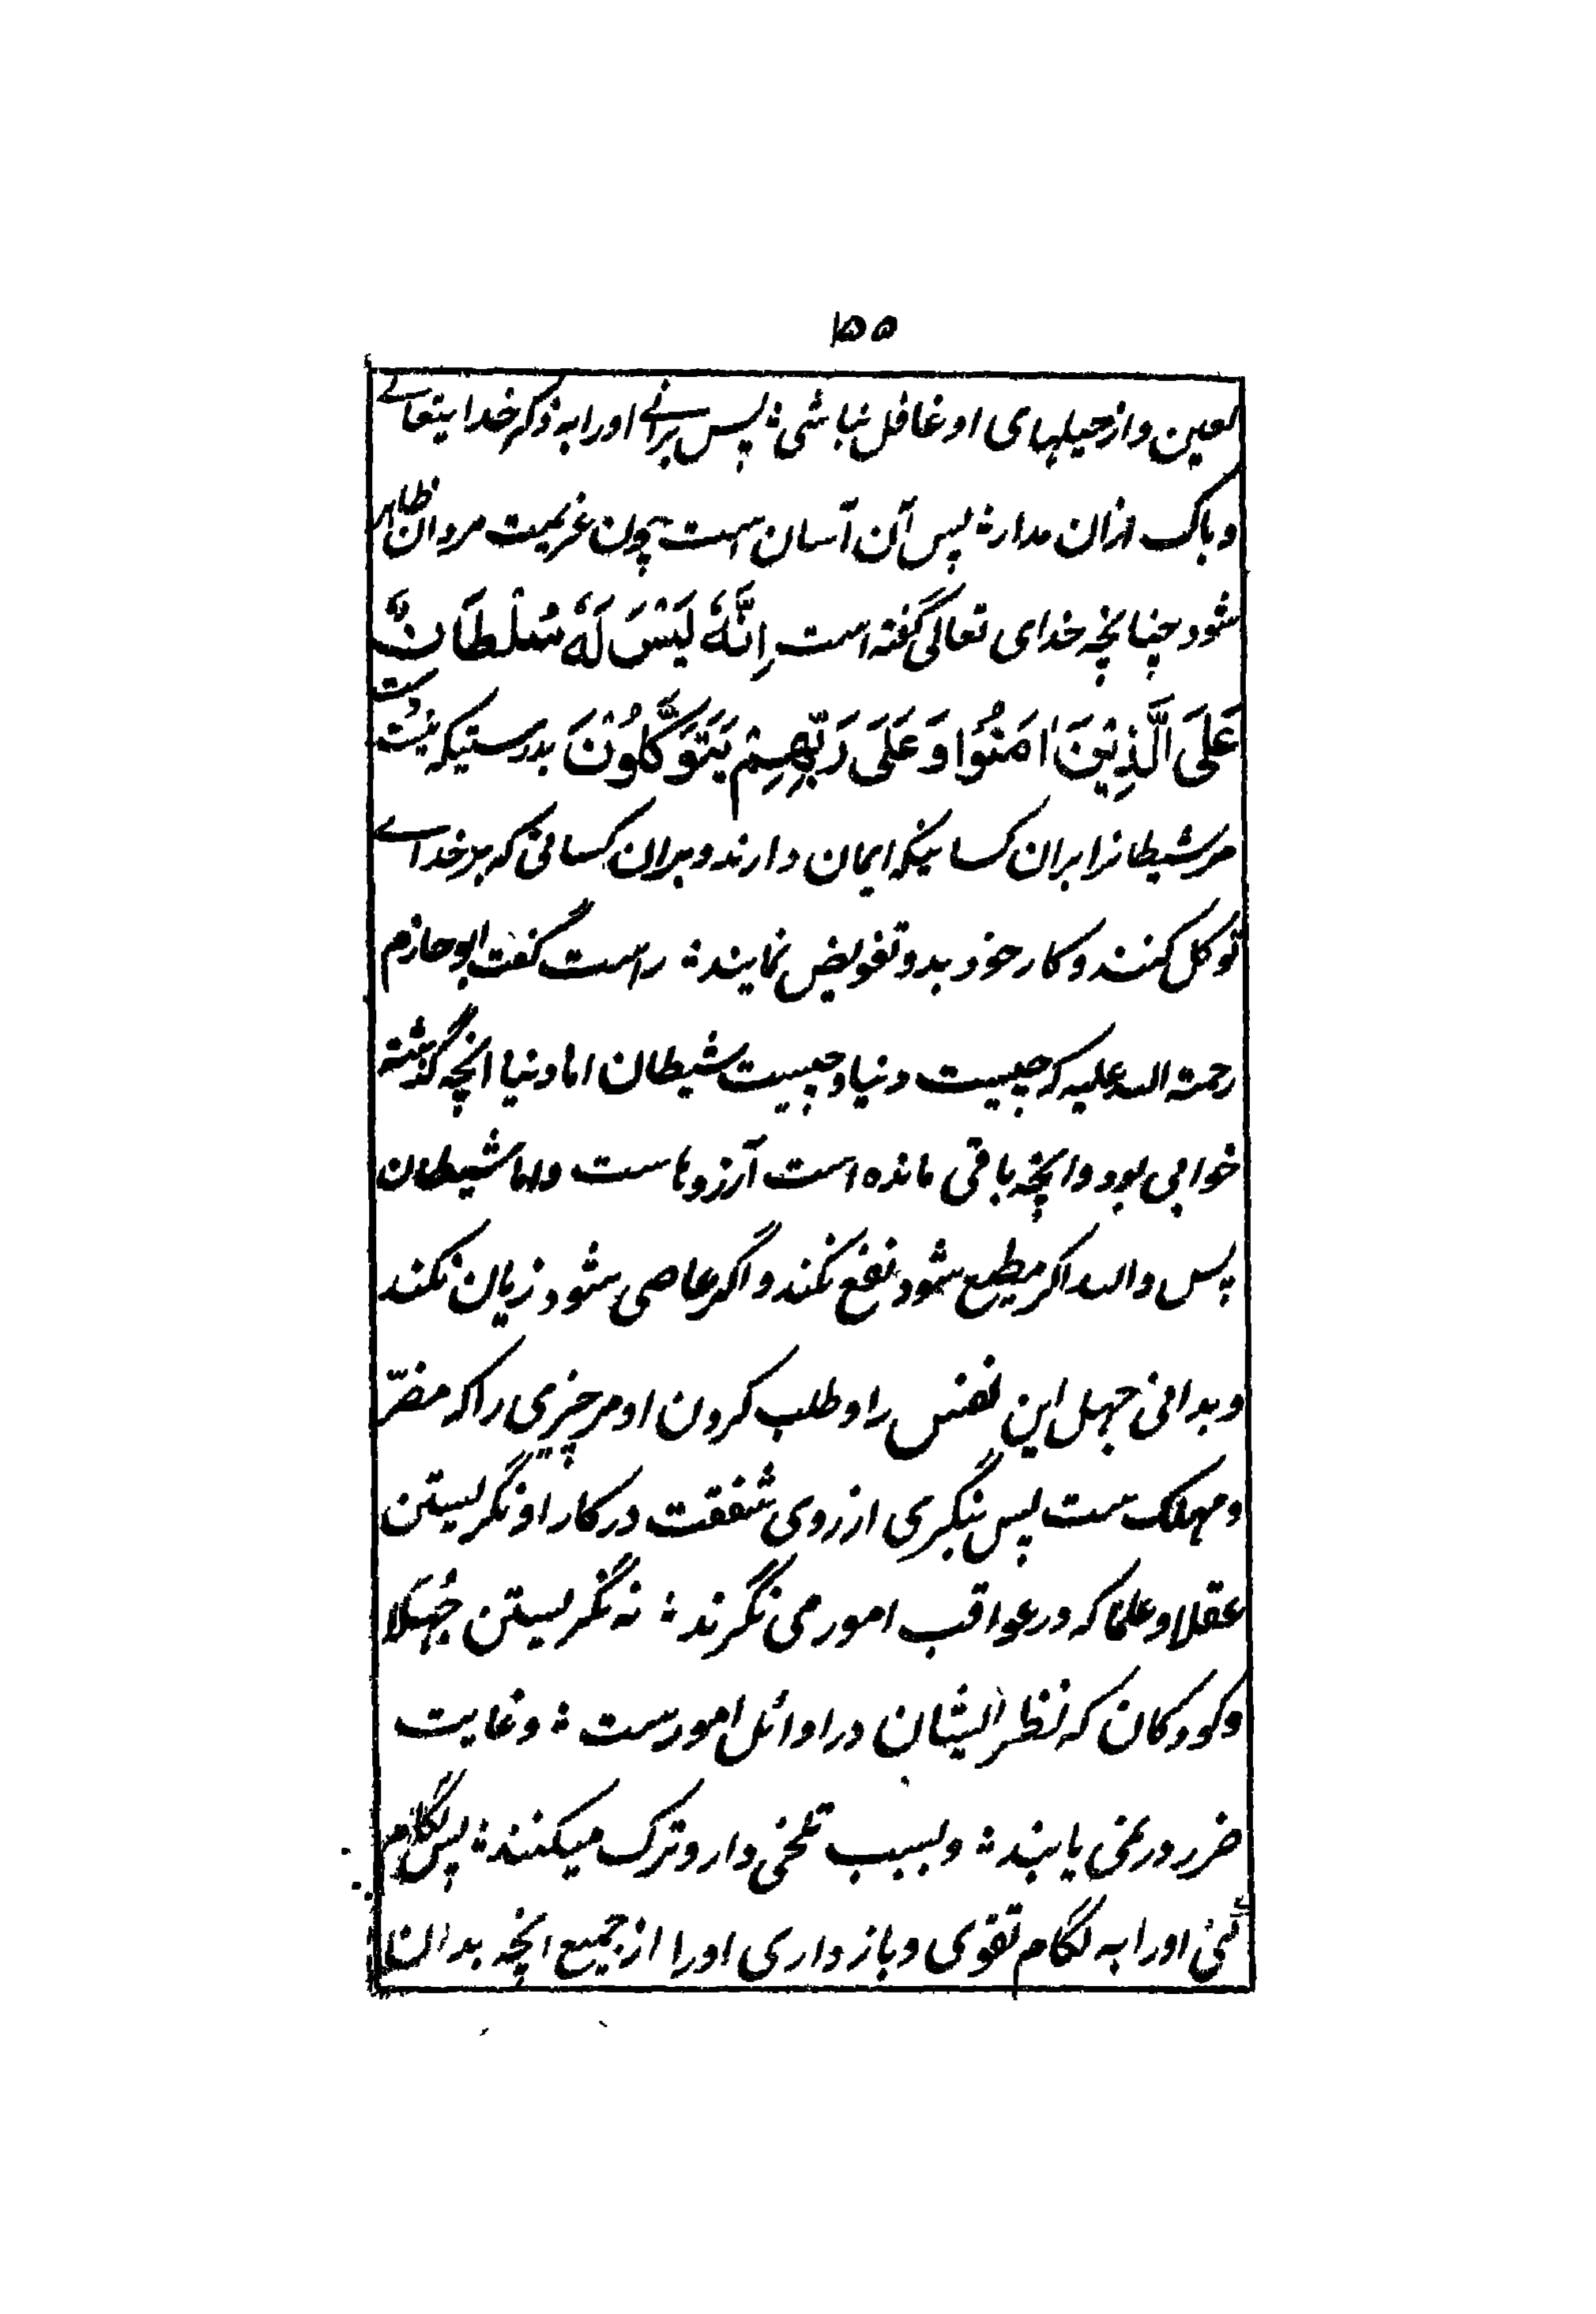 ۱۵۵
لعین و از حیلهای او غافل نباشی؛ پس برانے اورا بہ ذکر خدایتعالے
و باک ازان مدار؛ پس آن آسان است چون عزیمت مردان ظاہر
شود چنانچہ خدای تعالی گفتہ است اِنَّهٗ لَيْسَ لَهٗ سُلْطَانٌ
عَلَى الَّذِيْنَ اٰمَنُوْا وَعَلٰى رَبِّهِمْ يَتَوَكَّلُوْنَ بدرستیکہ نیست دست
مر شیطانرا بران کسانیکہ ایمان دارند و بران کسانی کہ بر خداے
توکل کنند و کار خود بدو تفویض نمایند؛ راست گفت ابو حازم
رحمۃ اللہ علیہ کہ چیست دنیا و چیست شیطان اما دنیا انچہ گذشتہ
خوابی بود و انچہ باقی ماندہ است آرزوہاست و اما شیطان
پس واللہ اگر مطیع شود نفع نکند و اگر عاصی شود زیان نکند
و بدانی جہل این نفس را و طلب کردن او مر چیزی را کہ مضرّ
و مہلک ست پس بنگری از روی شفقت در کار او نگریستن
عقلا و علما کہ در عواقب امور می نگرند؛ نہ نگریستن جُہَلا
و کودکان کہ نظر ایشان در اوائل امورست؛ و غایت
ضرر در نمی یابند؛ و بسبب تلخی دارو ترک میکنند؛ پس لگام
کنی اورا بہ لگام تقوی و باز داری اورا از جمیع انچہ بدان